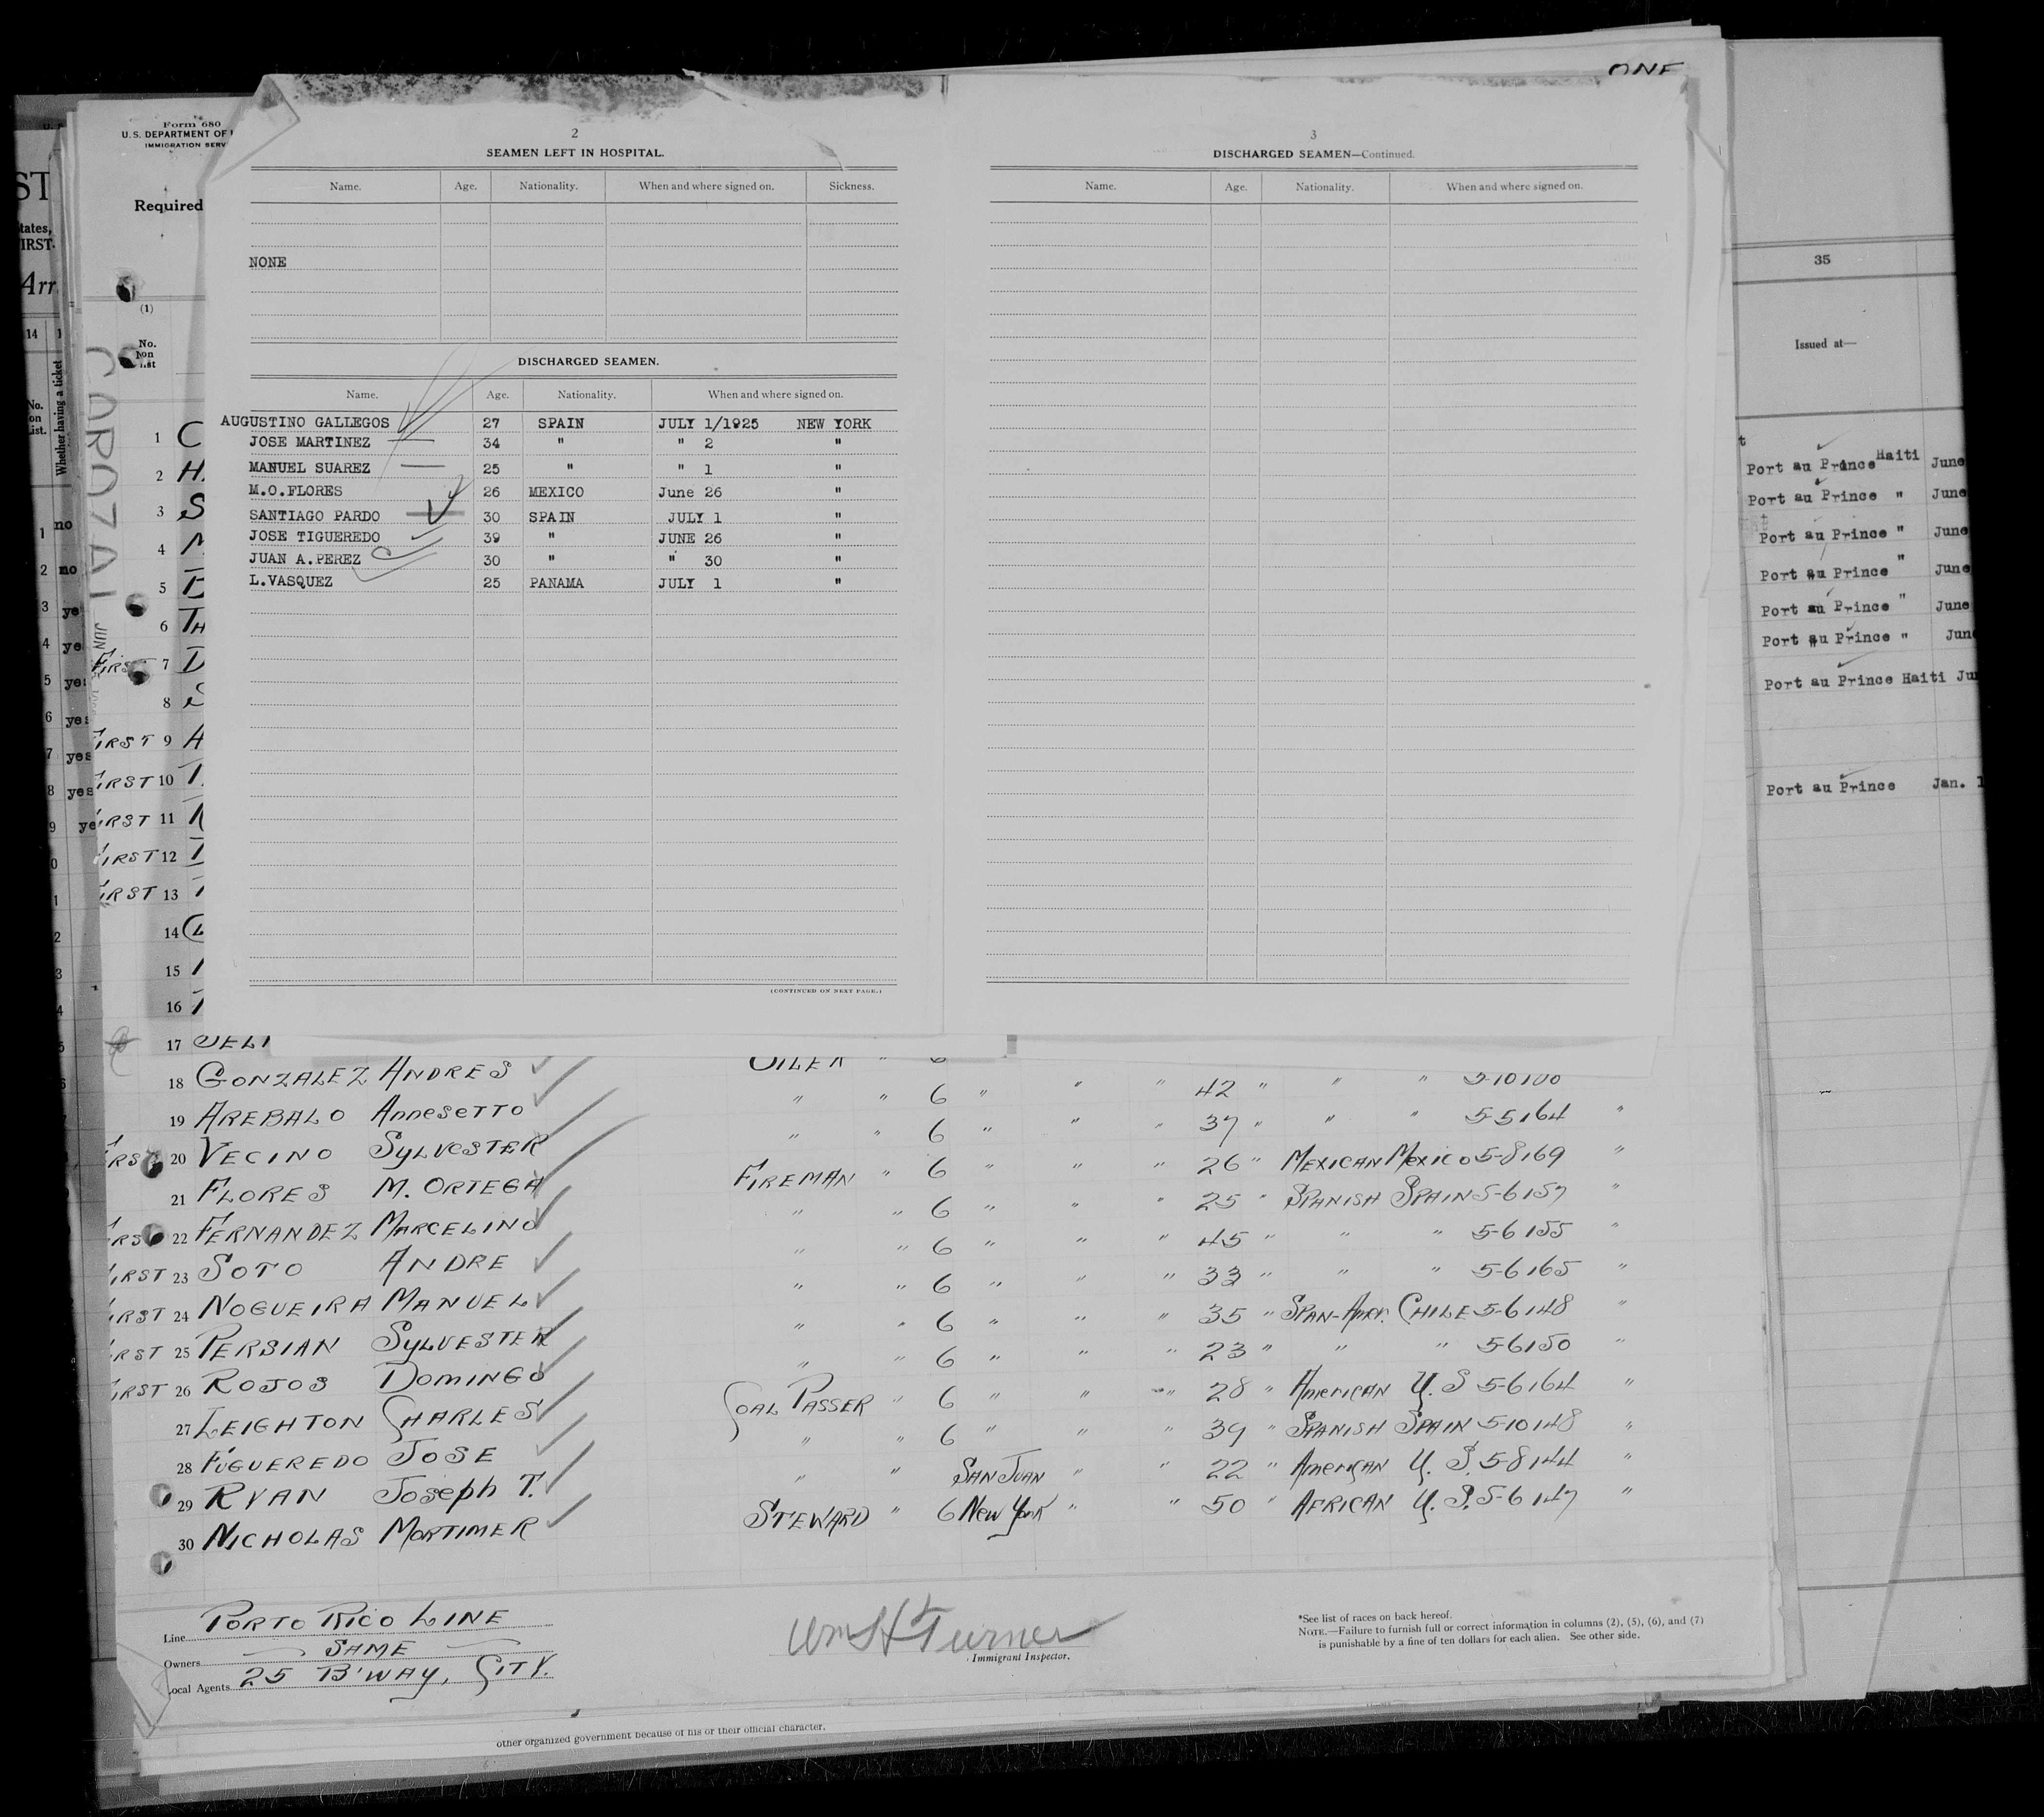 ONE
Form 680
U.S. DEPARTMENT OF
IMMIGRATION SERV
Required
ST
tates,
IRST
Arr
14
No.
on
List.
Whether having a ticket
(1)
No.
on
list
CAROZAL JUN
2
SEAMEN LEFT IN HOSPITAL.
Name. Age. Nationality. When and where signed on. Sickness.
NONE
DISCHARGED SEAMEN.
Name. Age. Nationality. When and where signed on.
AUGUSTINO GALLEGOS 27 SPAIN JULY 1/1925 NEW YORK
JOSE MARTINEZ 34 " " 2 "
MANUEL SUAREZ 25 " " 1 "
M.O.FLORES 26 MEXICO June 26 "
SANTIAGO PARDO 30 SPAIN JULY 1 "
JOSE TIGUEREDO 39 " JUNE 26 "
JUAN A.PEREZ 30 " " 30 "
L.VASQUEZ 25 PANAMA JULY 1 "
(CONTINUED ON NEXT PAGE.)
3
DISCHARGED SEAMEN—Continued.
Name. Age. Nationality. When and where signed on.
35
Issued at—
Port au Prince Haiti June
Port au Prince " June
Port au Prince " June
Port au Prince " June
Port au Prince " June
Port au Prince " June
Port au Prince Haiti Ju
Port au Prince Jan. 1
1 no
2 no
3 ye
4 ye
5 yes
6 yes
7 yes
8 yes
9 ye
1 C
2 H
3 S
4 M
5 B
6 TH
FIRST 7 D
8 S
FIRST 9 A
FIRST 10
FIRST 11
FIRST 12
FIRST 13
14
15
16
17
OILER " 6
18 GONZALEZ ANDRES " " 6 " " " 42 " " " 5-10 160
19 AREBALO Annesetto " " 6 " " " 37 " " " 5-5 164 "
20 VECINO SYLVESTER FIREMAN " 6 " " " 26 " MEXICAN Mexico 5-8 169 "
21 FLORES M. ORTEGA " " 6 " " " 25 " SPANISH SPAIN 5-6 157 "
22 FERNANDEZ MARCELINO " " 6 " " " 45 " " " 5-6 155 "
FIRST 23 SOTO ANDRE " " 6 " " " 33 " " " 5-6 165 "
FIRST 24 NOGUEIRA MANUEL " " 6 " " " 35 " SPAN-Amer. CHILE 5-6 148 "
FIRST 25 PERSIAN SYLVESTER " " 6 " " " 23 " " " 5-6 150 "
FIRST 26 ROJOS DOMINGO COAL PASSER " 6 " " " 28 " American U.S 5-6 164 "
27 LEIGHTON CHARLES " " 6 " " " 39 " SPANISH SPAIN 5-10 148 "
28 FUGUEREDO JOSE " " SAN JUAN " " 22 " American U.S. 5-8 144 "
29 RYAN Joseph T. STEWARD " 6 New York " " 50 " AFRICAN U.S. 5-6 147 "
30 NICHOLAS MORTIMER
Line PORTO RICO LINE
Owners SAME
Local Agents 25 B'WAY, CITY.
Wm H Turner
Immigrant Inspector.
*See list of races on back hereof.
NOTE.—Failure to furnish full or correct information in columns (2), (5), (6), and (7)
is punishable by a fine of ten dollars for each alien. See other side.
other organized government because of his or their official character.